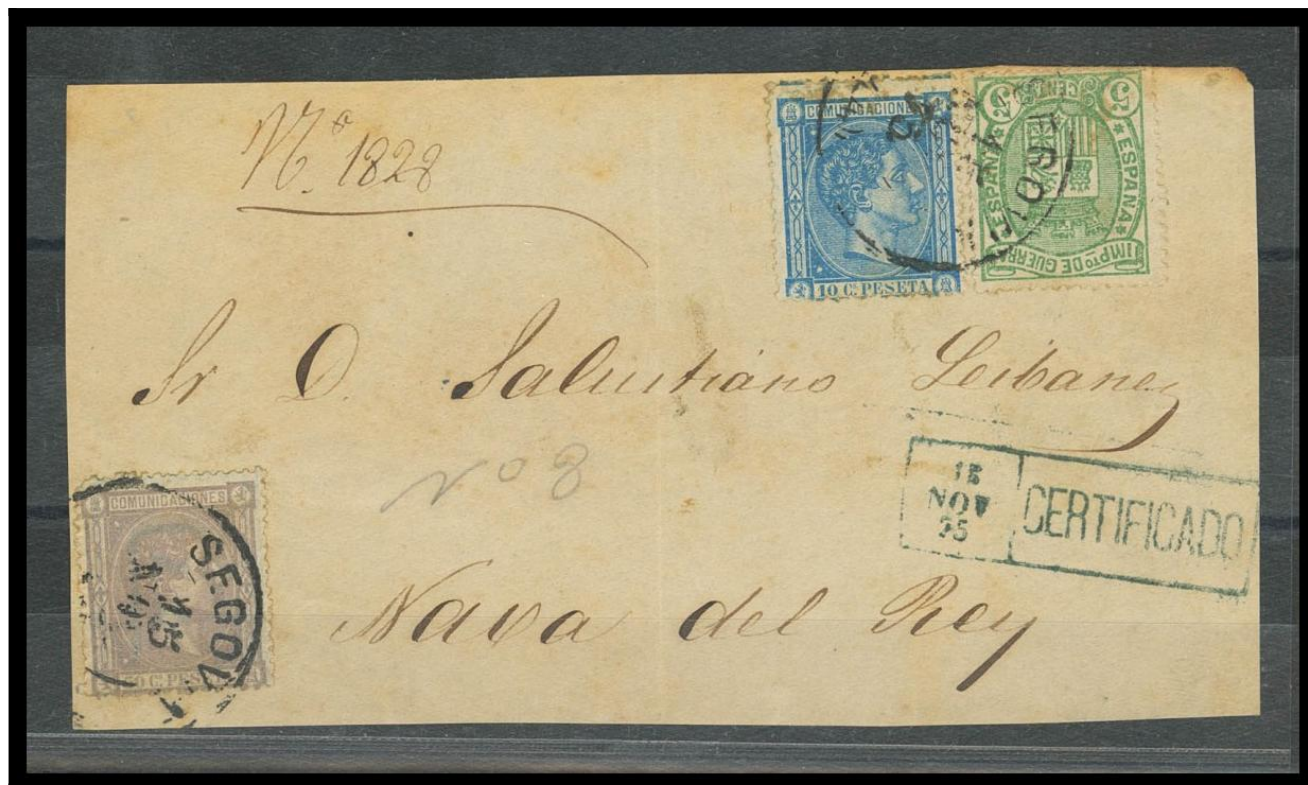 Nº 1828
COMUNICACIONES
10 C. PESETA
5 CENT 5
* ESPAÑA *
* ESPAÑA *
IMPTO DE GUERRA
SEGOV
Sr D. Salustiano Leibanez
Nº 8
15
NOV
75
CERTIFICADO
COMUNICACIONES
C. PES
SEGOV
15
Nava del Rey